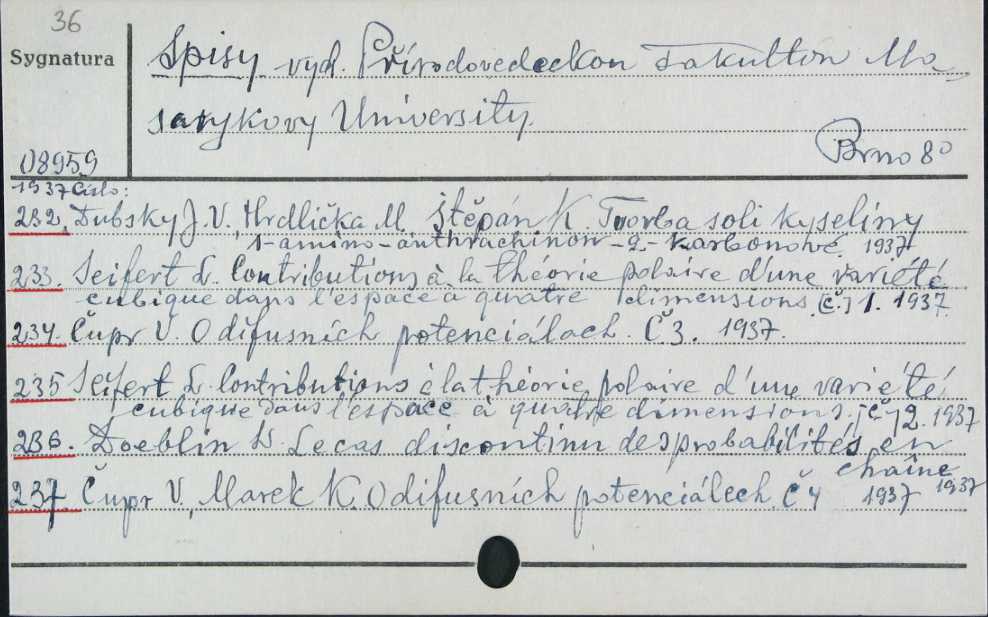 36
Sygnatura
Spisy vyd. Přírodovedeckou Fakultou Ma
sarykovy University.
Brno 8°
08959
1937 Cislo:
232. Dubsky J. V., Hrdlička M. Štěpán K. Tvorba soli kyseliny
1-amino-anthrachinon-2-karbonové. 1937
233. Seifert L. Contributions à la théorie polaire d'une variété
cubique dans l'espace à quatre dimensions. [č.] 1. 1937.
234. Čupr V. O difusních potenciálach. Č 3. 1937.
235 Seifert L. Contributions à la théorie polaire d'une variété
cubique dans l'éspace à quatre dimensions. [č] 2. 1937
236. Doeblin W. Le cas discontinu des probabilités en
chaîne
1937
237. Čupr V., Marek K. O difusních potenciálech. Č 4 1937